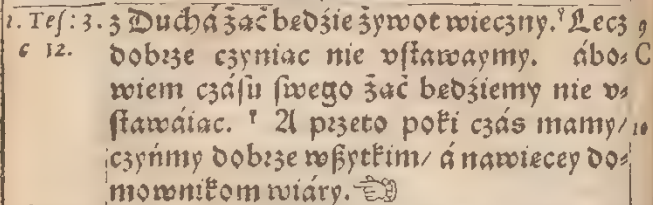 1. Teſ: 3. z Duchá żąć będzie żywot wieczny. ⁹ Lecz 9
c 12. dobrze czyniąc nie vſtawaymy. ábo⸗ C
wiem czáſu ſwego żąć będziemy nie v⸗
ſtawáiąc. ᵗ A przeto poki czás mamy/ 10
czyńmy dobrze wſzytkim/ á nawięcey do⸗
mownikom wiáry. ☜